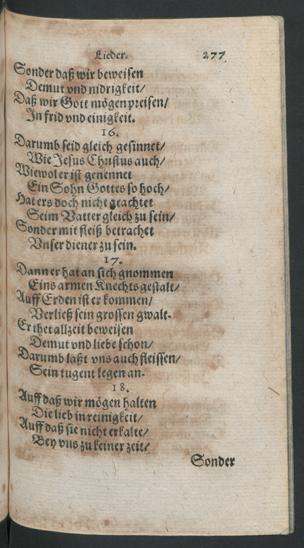 Lieder. 277
Sonder daß wir beweisen
Demut vnd nidrigkeit/
Daß wir Gott mögen preisen/
In frid vnd einigkeit.
16.
Darumb seid gleich gesinnet/
Wie Jesus Christus auch/
Wiewol er ist genennet
Ein Sohn Gottes so hoch/
Hat ers doch nicht geachtet
Seim Vatter gleich zu sein/
Sonder mit fleiß betrachet
Vnser diener zu sein.
17.
Dann er hat an sich gnommen
Eins armen Knechts gestalt/
Auff Erden ist er kommen/
Verließ sein grossen gwalt.
Er thet allzeit beweisen
Demut vnd liebe schon/
Darumb laßt vns auch fleissen/
Sein tugent legen an.
18.
Auff daß wir mögen halten
Die lieb in reinigkeit/
Auff daß sie nicht erkalte/
Bey vns zu keiner zeit/
Sonder